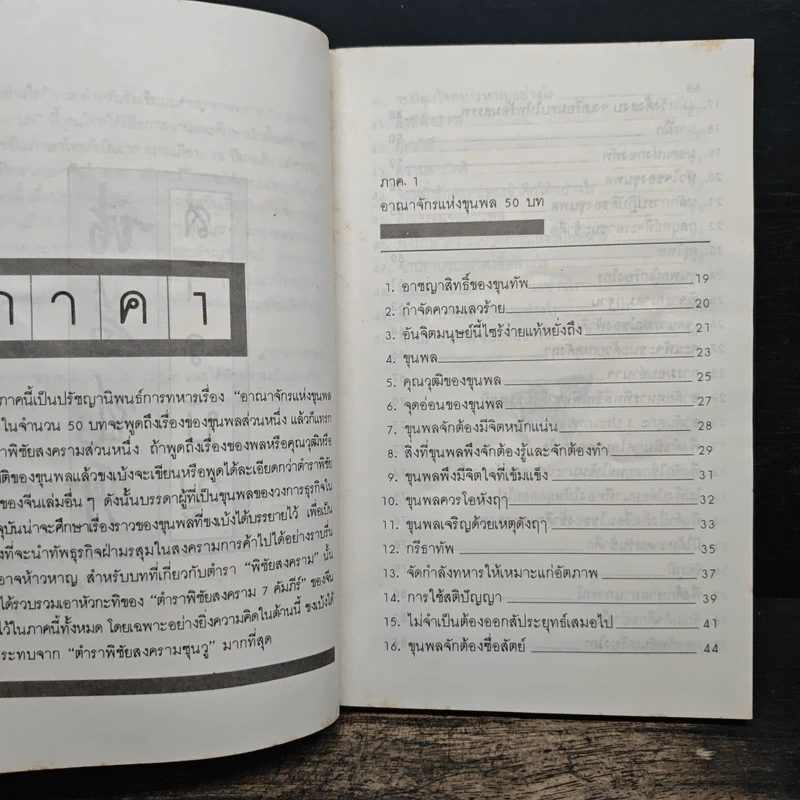 ภาค 1
ภาคนี้เป็นปรัชญานิพนธ์การทหารเรื่อง "อาณาจักรแห่งขุนพล
ในจำนวน 50 บทจะพูดถึงเรื่องของขุนพลส่วนหนึ่ง แล้วก็แทรก
ราพิชัยสงครามส่วนหนึ่ง ถ้าพูดถึงเรื่องของพลหรือคุณวุฒิหรือ
ติของขุนพลแล้วขงเบ้งจะเขียนหรือพูดได้ละเอียดกว่าตำราพิชัย
ของจีนเล่มอื่นๆ ดังนั้นบรรดาผู้ที่เป็นขุนพลของวงการธุรกิจใน
จุบันน่าจะศึกษาเรื่องราวของขุนพลที่ขงเบ้งได้บรรยายไว้ เพื่อเป็น
งที่จะนำทัพธุรกิจฝ่ามรสุมในสงครามการค้าไปได้อย่างราบรื่น
อาจห้าวหาญ สำหรับบทที่เกี่ยวกับตำรา "พิชัยสงคราม" นั้น
ได้รวบรวมเอาหัวกะทิของ "ตำราพิชัยสงคราม 7 คัมภีร์" ของจีน
ไว้ในภาคนี้ทั้งหมด โดยเฉพาะอย่างยิ่งความคิดในด้านนี้ ขงเบ้งได้
ระทบจาก "ตำราพิชัยสงครามซุนวู" มากที่สุด
ภาค. 1
อาณาจักรแห่งขุนพล 50 บท
1. อาชญาสิทธิ์ของขุนทัพ 19
2. กำจัดความเลวร้าย 20
3. อันจิตมนุษย์นี้ไซร้ง่ายแท้หยั่งถึง 21
4. ขุนพล 23
5. คุณวุฒิของขุนพล 25
6. จุดอ่อนของขุนพล 27
7. ขุนพลจักต้องมีจิตหนักแน่น 28
8. สิ่งที่ขุนพลพึงจักต้องรู้และจักต้องทำ 29
9. ขุนพลพึงมีจิตใจที่เข้มแข็ง 31
10. ขุนพลควรโอหังฤๅ 32
11. ขุนพลเจริญด้วยเหตุดังฤๅ 33
12. กรีธาทัพ 35
13. จัดกำลังทหารให้เหมาะแก่อัตภาพ 37
14. การใช้สติปัญญา 39
15. ไม่จำเป็นต้องออกสัประยุทธ์เสมอไป 41
16. ขุนพลจักต้องซื่อสัตย์ 44